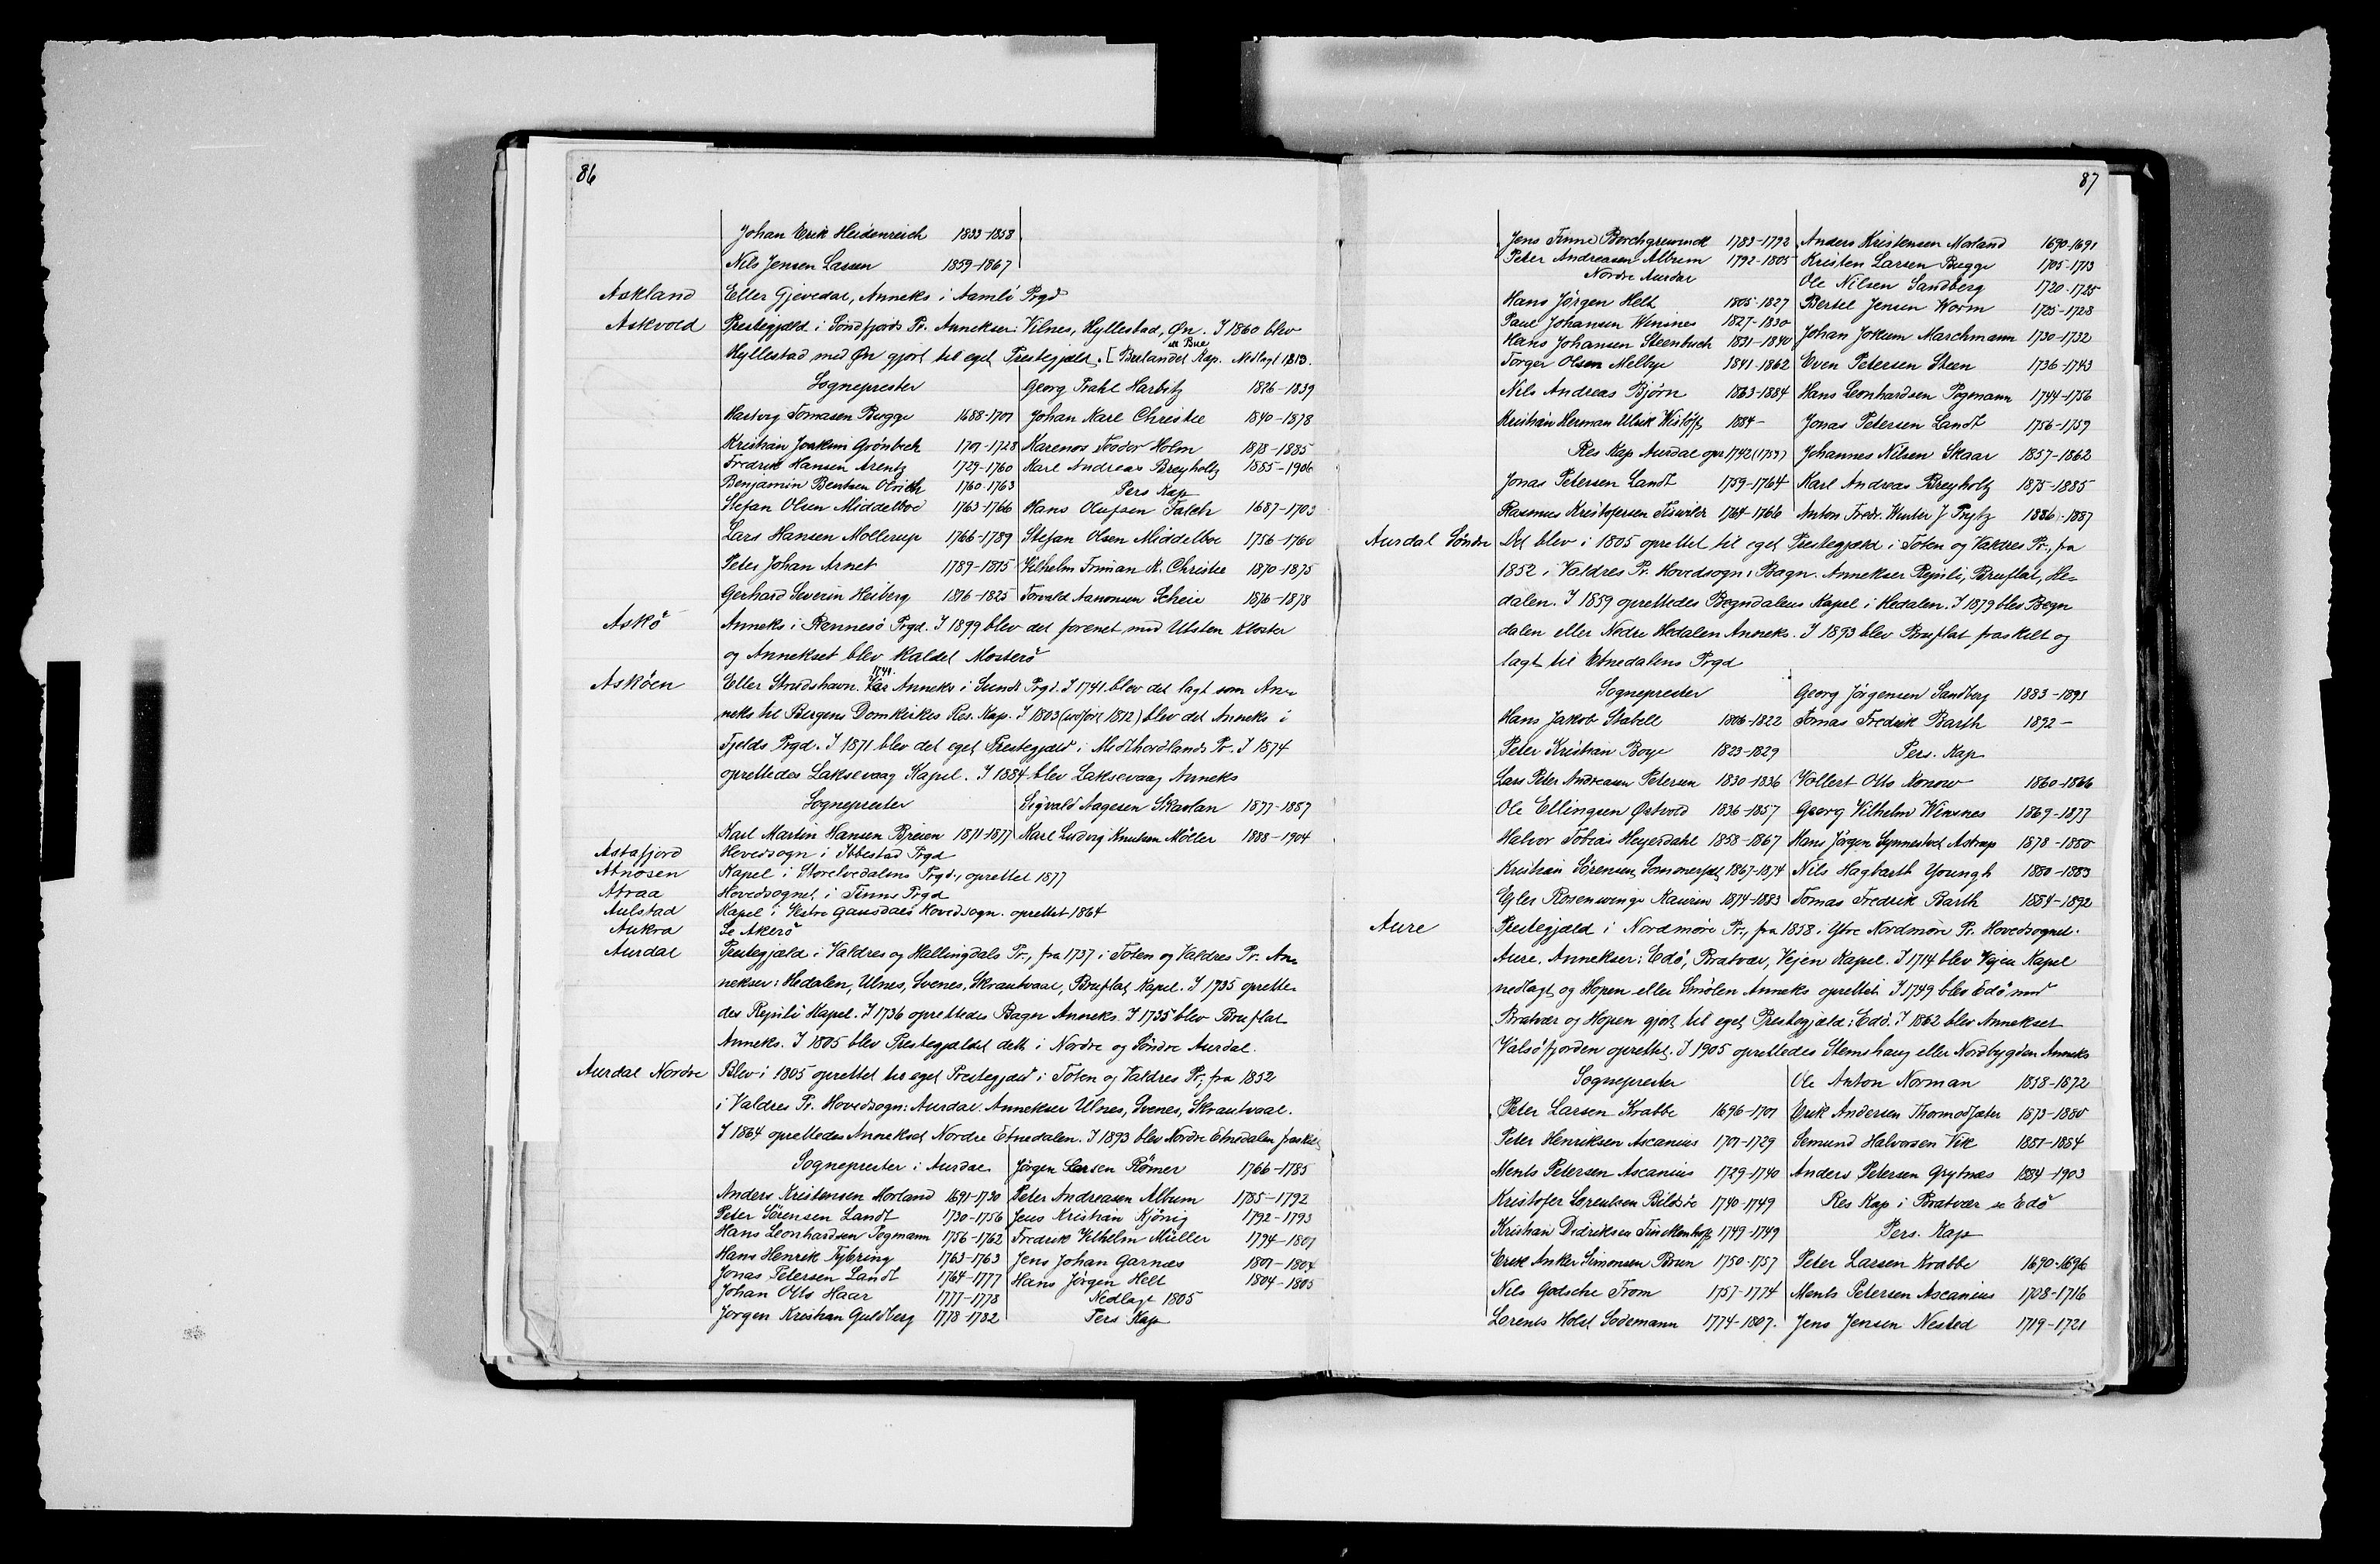 86
Johan Erik Heidenreich 1833-1858
Nils Jensen Lassen 1859-1867
Askland Eller Gjevedal, Anneks i Aamli Prgd
Askvold Prestegjæld i Söndfjords Pr. Annekser: Vilnes, Hyllestad, Øn. I 1860 blev
Hyllestad med Øn gjort til eget Prestegjæld. [Bulandet Kap. Nedlagt 1813.
Sogneprester
Hartvig Tomasen Bugge 1688-1701
Kristian Joakim Grönbech 1701-1728
Fredrik Hansen Arentz 1729-1760
Benjamin Bentsen Olrich 1760-1763
Stefan Olsen Middelboe 1763-1766
Lars Hansen Mollerup 1766-1789
Peter Johan Arnet 1789-1815
Gerhard Severin Heiberg 1816-1825
Georg Prahl Harbitz 1826-1839
Johan Karl Christie 1840-1878
Karenos Teodor Holm 1878-1885
Karl Andreas Breyholtz 1885-1906
Pers Kap
Hans Olufsen Falch 1687-1703
Stefan Olsen Middelboe 1756-1760
Vilhelm Friman K. Christie 1870-1875
Torvald Aanonsen Scheie 1876-1878
Askö Anneks i Rennesö Prgd. I 1899 blev det forenet med Utsten Kloster
og Annekset blev kaldet Mosterö
Asköen Eller Strudshavn. Var Anneks i Sunds Prgd. I 1741 blev det lagt som An-
neks til Bergens Domkirkes Res. Kap. I 1803 (udført 1812) blev det Anneks i
Fjelds Prgd. I 1871 blev det eget Prestegjæld i Midthordlands Pr. I 1874
oprettedes Laksevaag Kapel. I 1884 blev Laksevaag Anneks
Sogneprester
Karl Martin Hansen Breien 1871-1877
Sigvald Aagesen Skavlan 1877-1887
Karl Ludvig Knutsen Möller 1888-1904
Astafjord Hovedsogn i Ibbestad Prgd
Atnosen Kapel i Storelvedalens Prgd., oprettet 1877
Atraa Hovedsognet i Tinns Prgd
Aulstad Kapel i Vestre Gausdals Hovedsogn. oprettet 1864
Aukra Se Akerö
Aurdal Prestegjæld i Valdres og Hallingdals Pr., fra 1737 i Toten og Valdres Pr. An-
nekser: Hedalen, Ulnes, Svenes, Skrautvaal, Bruflat Kapel. I 1735 oprette-
des Reinli Kapel. I 1736 oprettedes Bagn Anneks. I 1735 blev Bruflat
Anneks. I 1805 blev Prestegjældet delt i Nordre og Söndre Aurdal.
Aurdal Nordre Blev i 1805 oprettet til eget Prestegjæld i Toten og Valdres Pr., fra 1852
i Valdres Pr. Hovedsogn: Aurdal. Annekser Ulnes, Svenes, Skrautvaal.
I 1864 oprettedes Annekset Nordre Etnedalen. I 1893 blev Nordre Etnedalen fraskilt
Sogneprester i Aurdal
Anders Kristensen Morland 1691-1730
Peter Sörensen Landt 1730-1756
Hans Leonhardsen Pogmann 1756-1762
Hans Henrik Tybring 1763-1763
Jonas Petersen Landt 1764-1777
Johan Otto Haar 1777-1778
Jörgen Kristian Guldberg 1778-1782
Jörgen Larsen Römer 1766-1785
Peter Andreasen Album 1785-1792
Jens Kristian Kjönig 1792-1793
Fredrik Vilhelm Müller 1794-1801
Jens Johan Garnæs 1801-1804
Hans Jörgen Helt 1804-1805
Nedlagt 1805
Pers Kap
87
Jens Finne Borchgrevinck 1783-1792
Peter Andreasen Album 1792-1805
Nordre Aurdal
Hans Jörgen Helt 1805-1827
Paul Johansen Winsnes 1827-1830
Hans Johansen Steenbuch 1831-1840
Torger Olsen Melbye 1841-1862
Nils Andreas Bjørn 1863-1884
Kristian Herman Ulrik Wislöff 1884-
Res Kap Aurdal opr 1742 (1759)
Jonas Petersen Landt 1759-1764
Rasmus Kristofersen 1764-1766
Anders Kristensen Morland 1690-1691
Kristen Larsen Bugge 1705-1713
Ole Nilsen Sandberg 1720-1725
Bertel Jensen Worm 1725-1728
Johan Jokum Marchmann 1730-1732
Even Petersen Steen 1736-1743
Hans Leonhardsen Pogmann 1744-1756
Jonas Petersen Landt 1756-1759
Johannes Nilsen Skaar 1857-1862
Karl Andreas Breyholtz 1875-1885
Anton Fredr. Winter J Prytz 1886-1887
Aurdal Söndre Det blev i 1805 oprettet til eget Prestegjæld i Toten og Valdres Pr., fra
1852 i Valdres Pr. Hovedsogn: Bagn. Annekser Reinli, Bruflat, He-
dalen. I 1859 oprettedes Begndalens Kapel i Hedalen. I 1879 blev Begn
dalen eller Nedre Hedalen Anneks. I 1893 blev Bruflat fraskilt og
lagt til Etnedalens Prgd
Sogneprester
Hans Jakob Stabell 1806-1822
Peter Kristian Boye 1823-1829
Lars Peter Andreasen Petersen 1830-1836
Ole Ellingsen Östvold 1836-1857
Halvor Tobias Heyerdahl 1858-1867
Kristian Sörensen Sommerfelt 1867-1874
Eyler Rosenwinge Kaurin 1874-1883
Georg Jörgensen Sandberg 1883-1891
Tomas Fredrik Barth 1892-
Pers. Kap
Vollert Otto Konow 1860-1866
Georg Vilhelm Winsnes 1869-1877
Hans Jörgen Synnestvedt Astrup 1878-1880
Nils Hagbarth Youngh 1880-1883
Tomas Fredrik Barth 1884-1892
Aure Prestegjæld i Nordmöre Pr., fra 1858 i Ytre Nordmöre Pr. Hovedsognet.
Aure. Annekser: Edö, Bratvær, Vejen Kapel. I 1714 blev Vejen Kapel
nedlagt og Hopen eller Smölen Anneks oprettet. I 1749 blev Edö med
Bratvær og Hopen gjort til eget Prestegjæld: Edö. I 1862 blev Annekset
Valsöfjorden oprettet. I 1905 oprettedes Stemshaug eller Nordbygden Anneks
Sogneprester
Peter Larsen Krabbe 1696-1701
Peter Henriksen Ascanius 1701-1729
Ments Petersen Ascanius 1729-1740
Kristofer Lorentsen Bildsöe 1740-1749
Kristian Didriksen Finckenhoff 1749-1749
Erik Anker Simonsen Brun 1750-1757
Nils Godsche From 1757-1774
Lorents Holst Sodemann 1774-1807.
Ole Anton Norman 1858-1872
Erik Andersen Thormodsæter 1873-1880
Semund Halvorsen Vik 1881-1884
Anders Petersen Grytnæs 1884-1903
Res Kap i Bratvær se Edö
Pers. Kap
Peter Larsen Krabbe 1690-1696
Ments Petersen Ascanius 1708-1716
Jens Jensen Nested 1719-1721